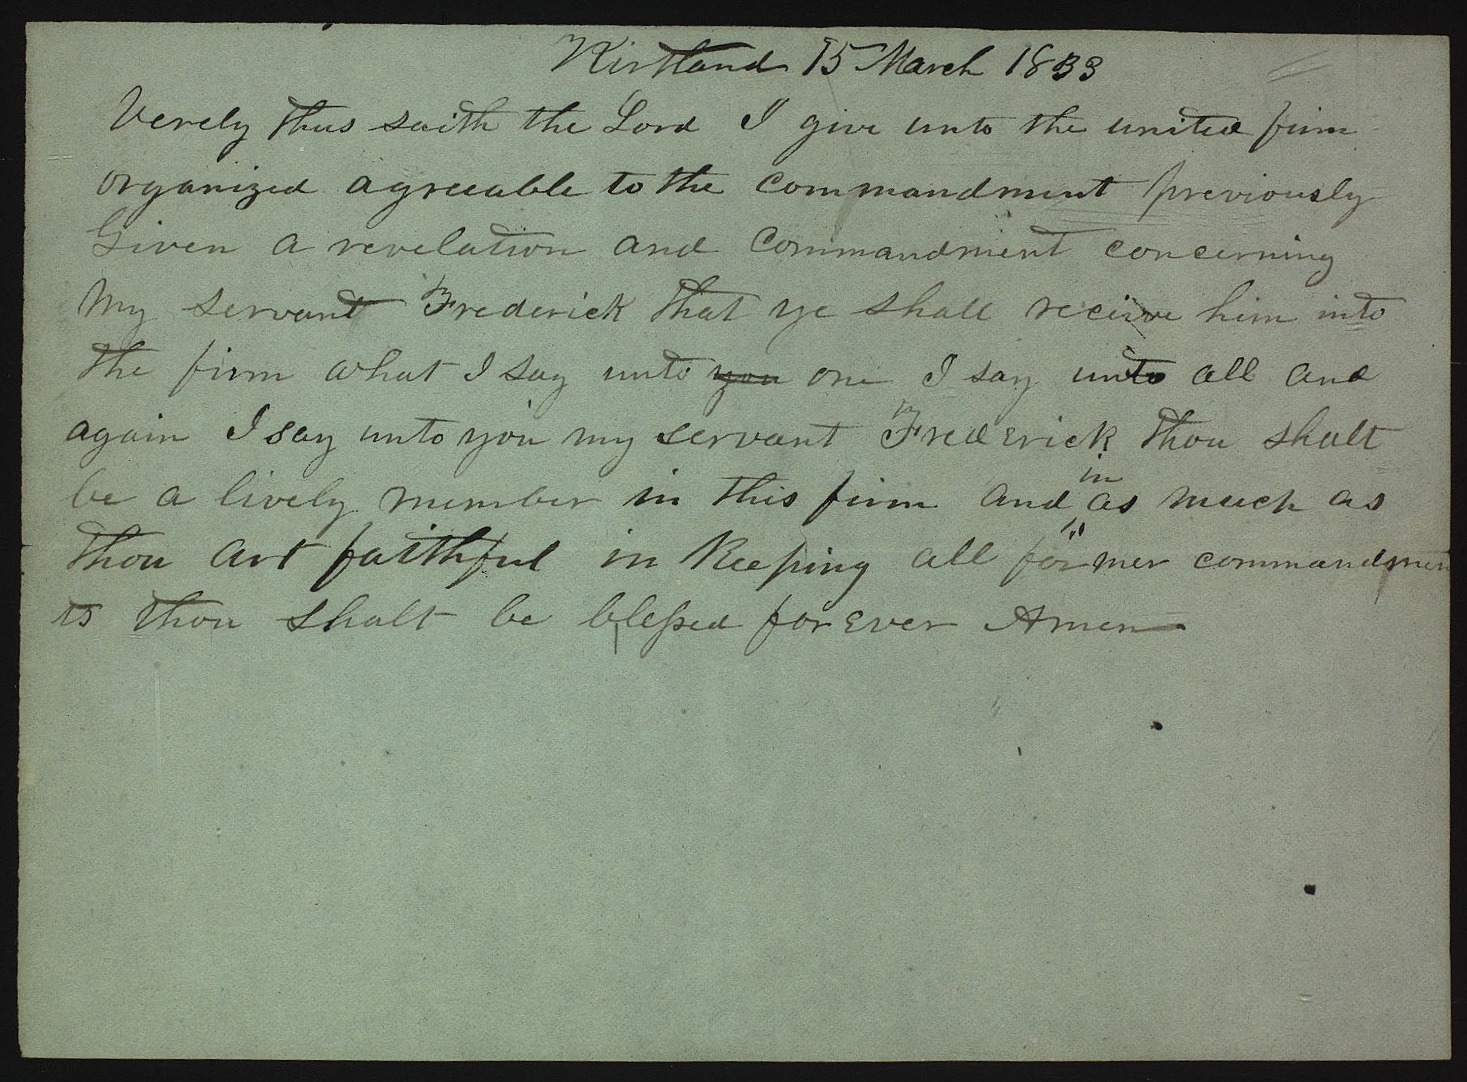 Kirtland 15 March 1833
Verely thus saith the Lord I give unto the united firm
organized agreeable to the commandment previously
Given a revelation and commandment concerning
My servant Frederick that ye shall receive him into
the firm what I say unto you one I say unto all and
again I say unto you my servant Frederick thou shalt
be a lively member in this firm and in as much as
thou art faithful in Keeping all former commandmen
ts thou shalt be blessed forever Amen